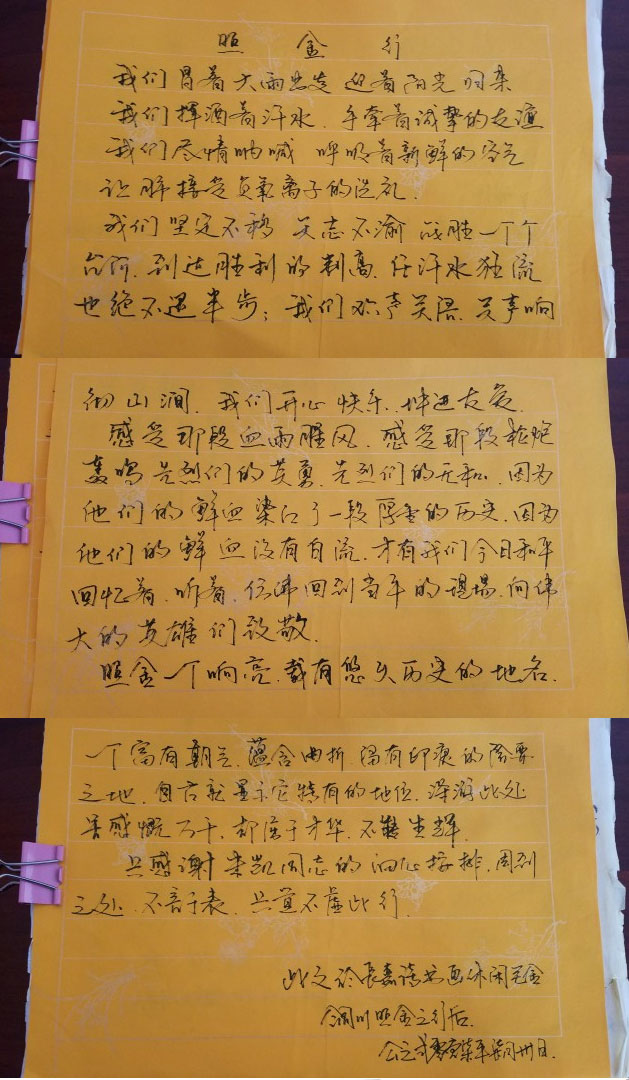 照金行
我们冒着大雨出发 迎着阳光归来
我们挥洒着汗水、手牵着诚挚的友谊
我们尽情呐喊 呼吸着新鲜的空气
让肺接受负氧离子的洗礼.
我们坚定不移 矢志不渝 战胜一个个
台阶、到达胜利的制高、任汗水狂流
也绝不退半步；我们欢声笑语、笑声响
彻山涧、我们开心快乐、增进友爱.
感受那段血雨腥风、感受那段枪炮
轰鸣 先烈们的英勇、先烈们的无私、因为
他们的鲜血染红了一段厚重的历史、因为
他们的鲜血没有白流、才有我们今日和平
回忆着、听着、仿佛回到当年的现场、向伟
大的英雄们致敬.
照金一个响亮、载有悠久历史的地名.
一个富有朝气、蕴含曲折、留有印痕的险要
之地、自古就显示它特有的地位、深游此处
皆感慨万千、却 于才华、不 生辉.
只感谢 凯同志的细心接排、周到
之处、不言于表、只道不虚此行.
此文於长 书画休闲
铜川照金之行后.
公 日.